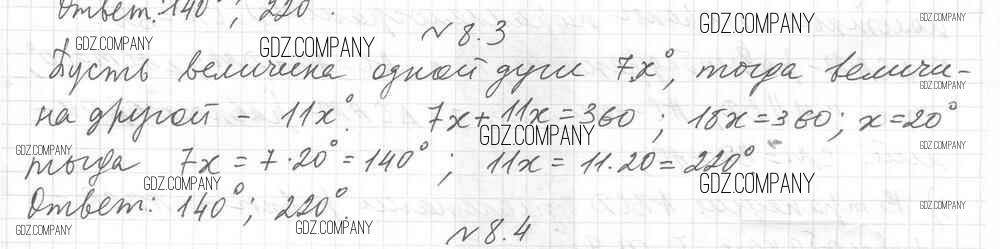 Ответ: 140°; 220°.
№8.3
Пусть величина одной дуги 7x°, тогда величи-
на другой - 11x°. 7x + 11x = 360; 18x = 360; x = 20°
тогда 7x = 7·20° = 140°; 11x = 11·20 = 220°
Ответ: 140°; 220°.
№8.4
GDZ.COMPANY
GDZ.COMPANY
GDZ.COMPANY
GDZ.COMPANY
GDZ.COMPANY
GDZ.COMPANY
GDZ.COMPANY
GDZ.COMPANY
GDZ.COMPANY
GDZ.COMPANY
GDZ.COMPANY
GDZ.COMPANY
GDZ.COMPANY